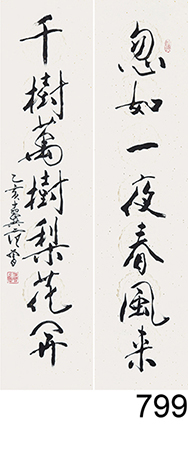 忽如一夜春風来
千樹萬樹梨花開
乙亥
799